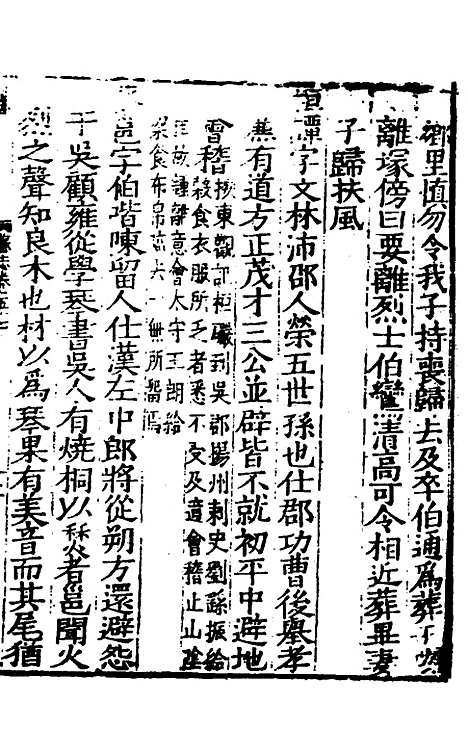 鄉里慎勿令我子持喪歸去及卒伯通爲葬於要
離塚傍曰要離烈士伯鸞清高可令相近葬畢妻
子歸扶風
字文林沛郡人榮五世孫也仕郡功曹後舉孝
有道方正茂才三公並辟皆不就初平中避地
會稽按東觀記桓礹到吳郡揚州刺史劉繇振給
穀食衣服所乏者悉不受及適會稽止山陰
故鍾離意舍太守王朗給
食布帛一無所留焉
邕字伯喈陳留人仕漢左中郎將從朔方還避怨
于吳顧雍從學琴書吳人有燒桐以炊者邕聞火
烈之聲知良木也材以爲琴果有美音而其尾猶